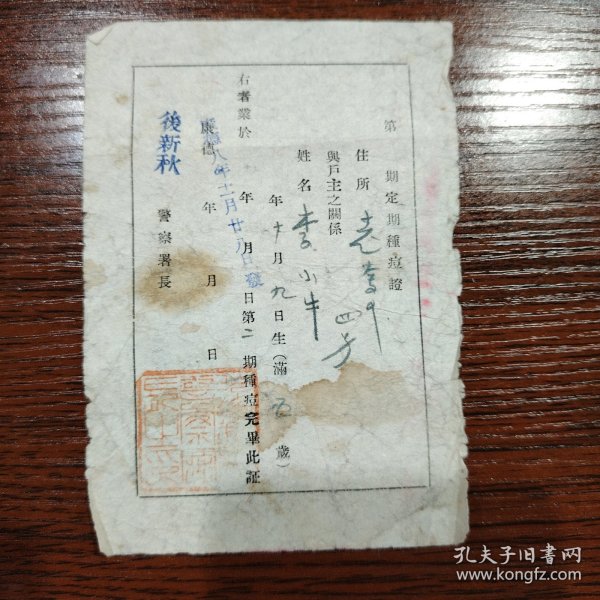 第 期定期種痘證
住所
四男
與戶主之關係
姓名 李小牛
年十月九日生(滿五歲)
右者業於 年 月 日第二期種痘完畢此証
康德八年十二月廿八日發
康德 年 月 日
後新秋 警察署長
孔夫子旧书网
www.kongfz.com